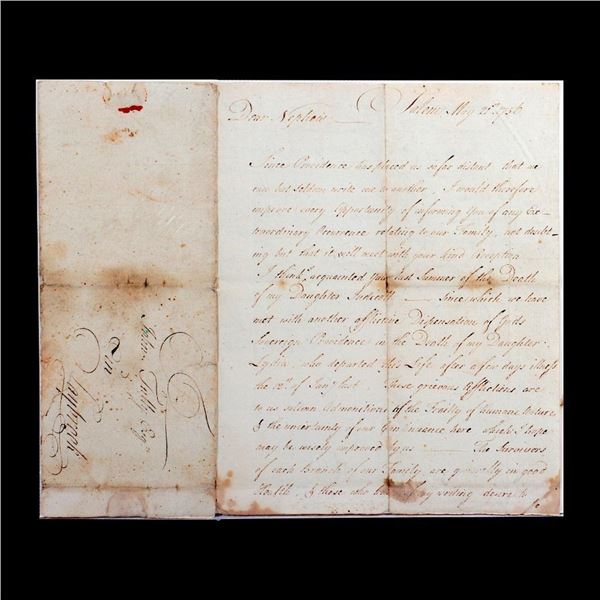 Salem May 21st 1756
Dear Nephew
Since Providence has placed us so far distant that we
can but seldom write one to another, I would therefore
improve every Opportunity of informing you of any Ex-
traordinary Occurrence relating to our Family, not doubt-
ing but that it will meet with your kind Reception
I think I acquainted you last Summer of the Death
of my Daughter Endicott Since which we have
met with another afflictive Dispensation of Gods
Sovereign Providence in the Death of my Daughter
Lydia, who departed this Life after a few days illness
the 12th of Last These grievous Afflictions are
to us solemn Admonitions of the Frailty of humane Nature
& the uncertainty of our Continuance here which I hope
may be wisely improved by us The Survivors
of each Branch of our Family are generally in good
Health, & those who of my writing desire to
be
To
Esqr
in